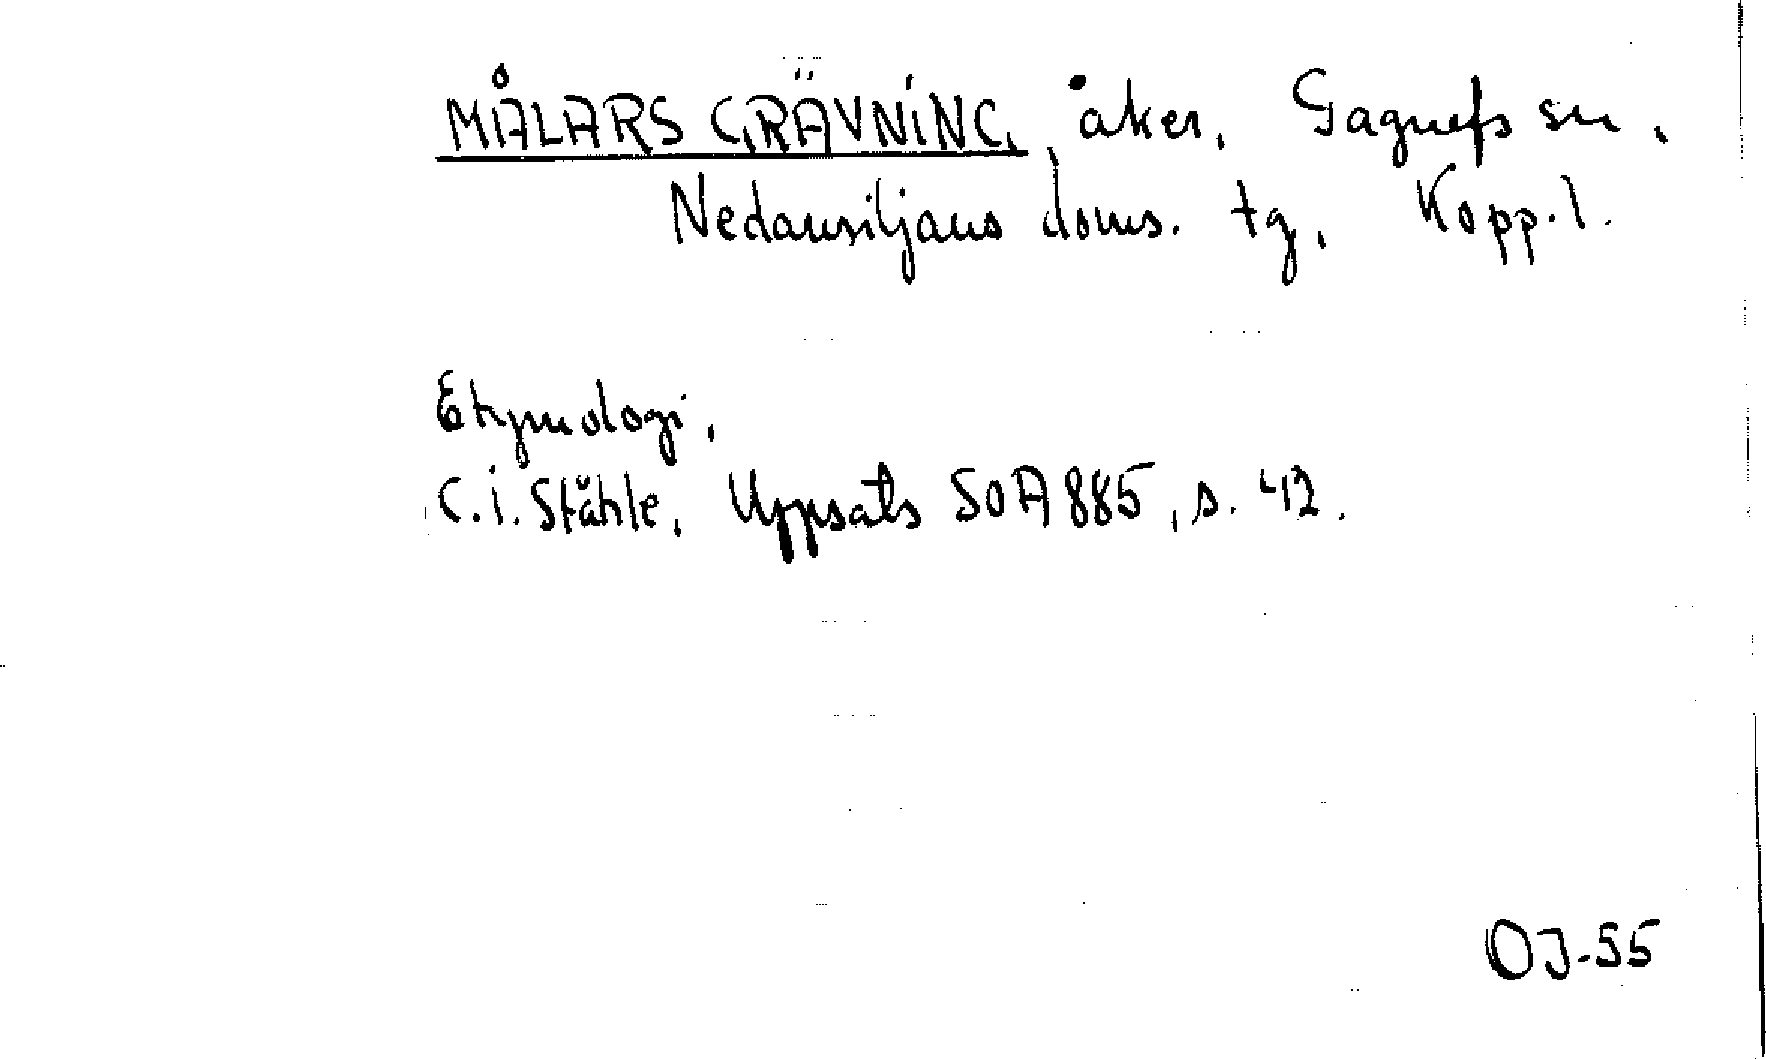 MÅLARS GRÄVNING, åker, Gagnefs sn,
Nedansiljans doms. tg, Kopp. l.
Etymologi,
C. I. Ståhle, Uppsats SOA 885, s. 42.
OJ-55